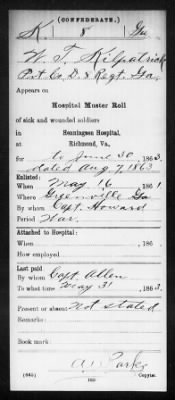 (CONFEDERATE.)
K 8 Ga
W. T. Kilpatrick
Pvt Co. D. 8 Regt. Ga.
Appears on
Hospital Muster Roll
of sick and wounded soldiers
in Henningsen Hospital,
Richmond, Va.,
for to June 30, 1863.
dated Aug 7, 1863
Enlisted:
When May 16, 1861
Where Greenville Ga
By whom Capt. Howard
Period War.
Attached to Hospital:
When , 186 .
How employed
Last paid
By whom Capt. Allen
To what time May 31, 1863.
Present or absent Not stated
Remarks:
Book mark:
Copyist.